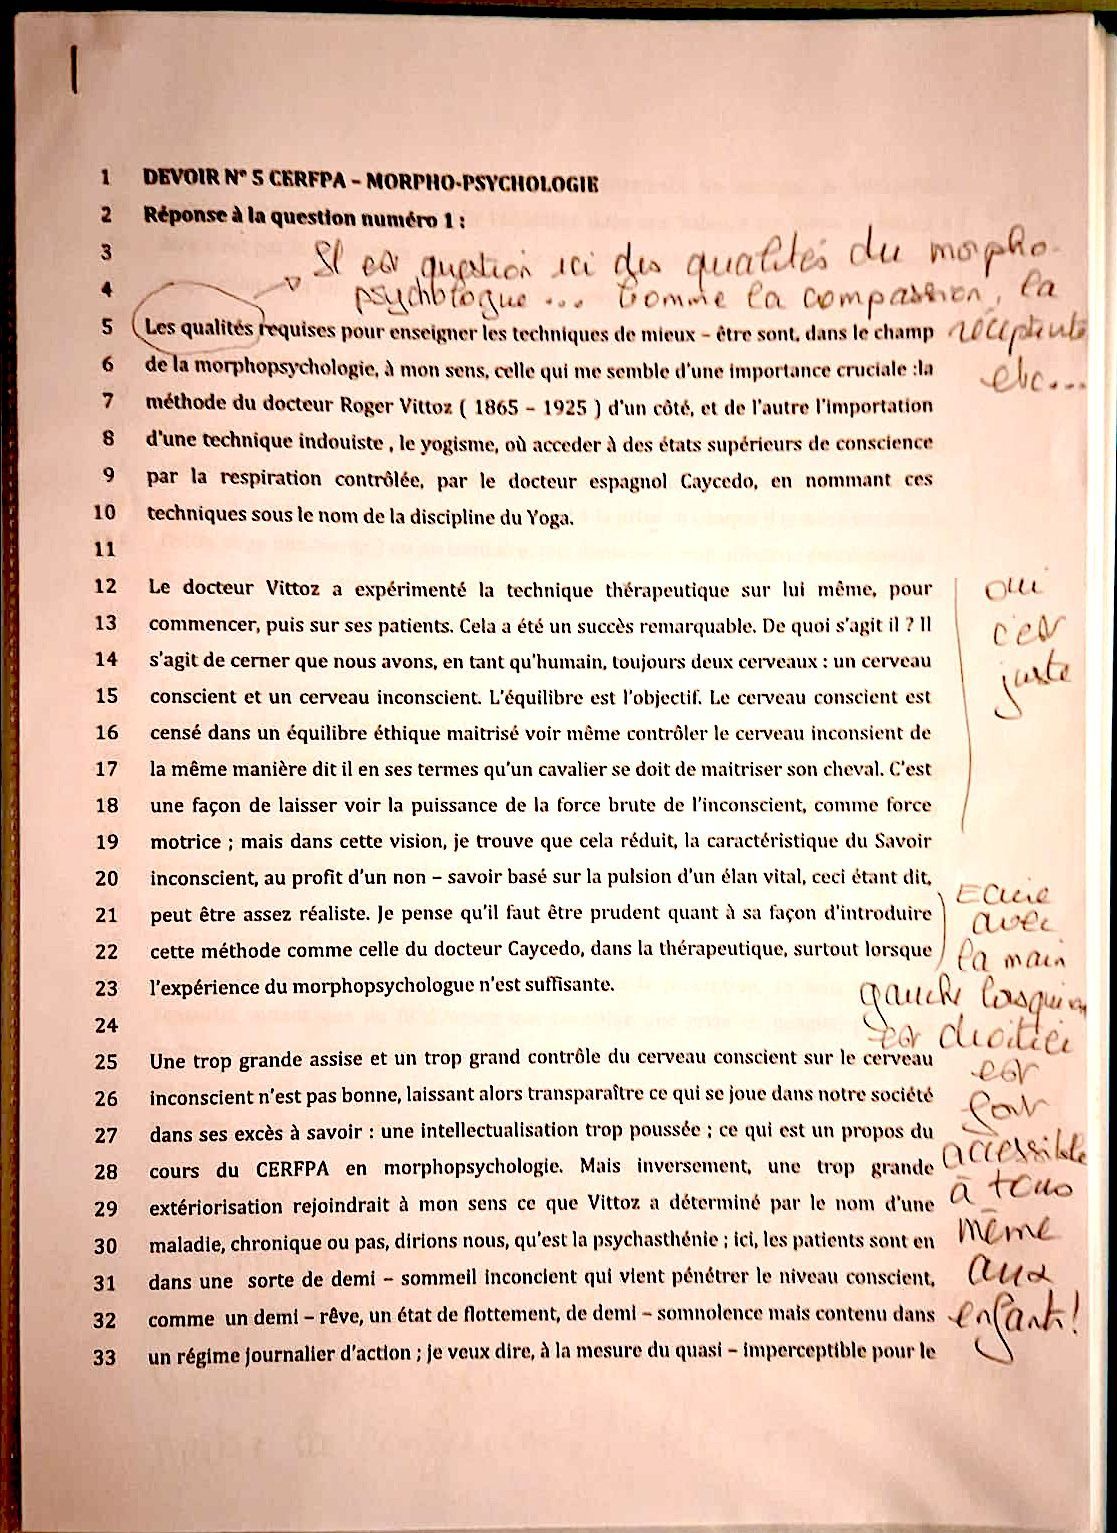 1 DEVOIR N° 5 CERFPA – MORPHO-PSYCHOLOGIE
2 Réponse à la question numéro 1 :
3 Il est question ici des qualités du morpho-
4 psychologue ... comme la compassion, la
5 Les qualités requises pour enseigner les techniques de mieux – être sont, dans le champ réceptivité
6 de la morphopsychologie, à mon sens, celle qui me semble d'une importance cruciale :la etc...
7 méthode du docteur Roger Vittoz ( 1865 – 1925 ) d'un côté, et de l'autre l'importation
8 d'une technique indouiste , le yogisme, où acceder à des états supérieurs de conscience
9 par la respiration contrôlée, par le docteur espagnol Caycedo, en nommant ces
10 techniques sous le nom de la discipline du Yoga.
11
12 Le docteur Vittoz a expérimenté la technique thérapeutique sur lui même, pour oui
13 commencer, puis sur ses patients. Cela a été un succès remarquable. De quoi s'agit il ? Il c'est
14 s'agit de cerner que nous avons, en tant qu'humain, toujours deux cerveaux : un cerveau juste
15 conscient et un cerveau inconscient. L'équilibre est l'objectif. Le cerveau conscient est
16 censé dans un équilibre éthique maitrisé voir même contrôler le cerveau inconsient de
17 la même manière dit il en ses termes qu'un cavalier se doit de maitriser son cheval. C'est
18 une façon de laisser voir la puissance de la force brute de l'inconscient, comme force
19 motrice ; mais dans cette vision, je trouve que cela réduit, la caractéristique du Savoir
20 inconscient, au profit d'un non – savoir basé sur la pulsion d'un élan vital, ceci étant dit, Ecrire
21 peut être assez réaliste. Je pense qu'il faut être prudent quant à sa façon d'introduire avec
22 cette méthode comme celle du docteur Caycedo, dans la thérapeutique, surtout lorsque la main
23 l'expérience du morphopsychologue n'est suffisante. gauche lorsqu'on
24 est droitier
25 Une trop grande assise et un trop grand contrôle du cerveau conscient sur le cerveau est
26 inconscient n'est pas bonne, laissant alors transparaître ce qui se joue dans notre société
27 dans ses excès à savoir : une intellectualisation trop poussée ; ce qui est un propos du accessible
28 cours du CERFPA en morphopsychologie. Mais inversement, une trop grande à tous
29 extériorisation rejoindrait à mon sens ce que Vittoz a déterminé par le nom d'une même
30 maladie, chronique ou pas, dirions nous, qu'est la psychasthénie ; ici, les patients sont en aux
31 dans une sorte de demi – sommeil inconcient qui vient pénétrer le niveau conscient, enfants!
32 comme un demi – rêve, un état de flottement, de demi – somnolence mais contenu dans
33 un régime journalier d'action ; je veux dire, à la mesure du quasi – imperceptible pour le